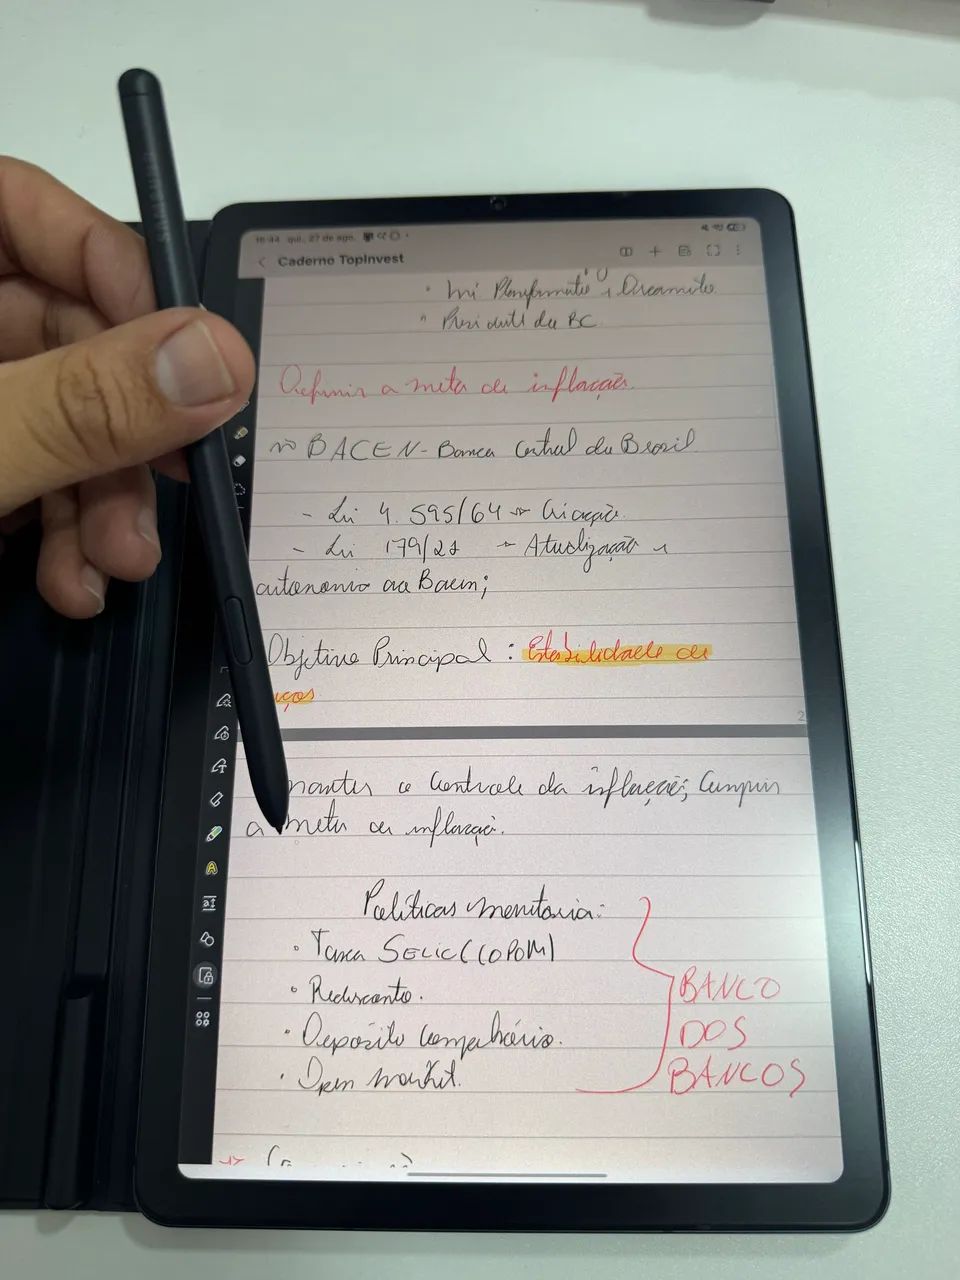 SAMSUNG
16:44 qui., 27 de ago.
Caderno TopInvest
Presidente do BC
Definir a meta de inflação.
BACEN - Banco Central do Brasil
- Lei 4.595/64 → Criação
- Lei 179/21 → Atualização e
autonomia do Bacen;
Objetivo Principal : Estabilidade de
2
manter o controle da inflação; Cumprir
a meta de inflação.
Políticas monetária:
• Taxa SELIC (COPOM)
• Redesconto.
• Depósito Compulsório.
• Open market.
BANCO
DOS
BANCOS